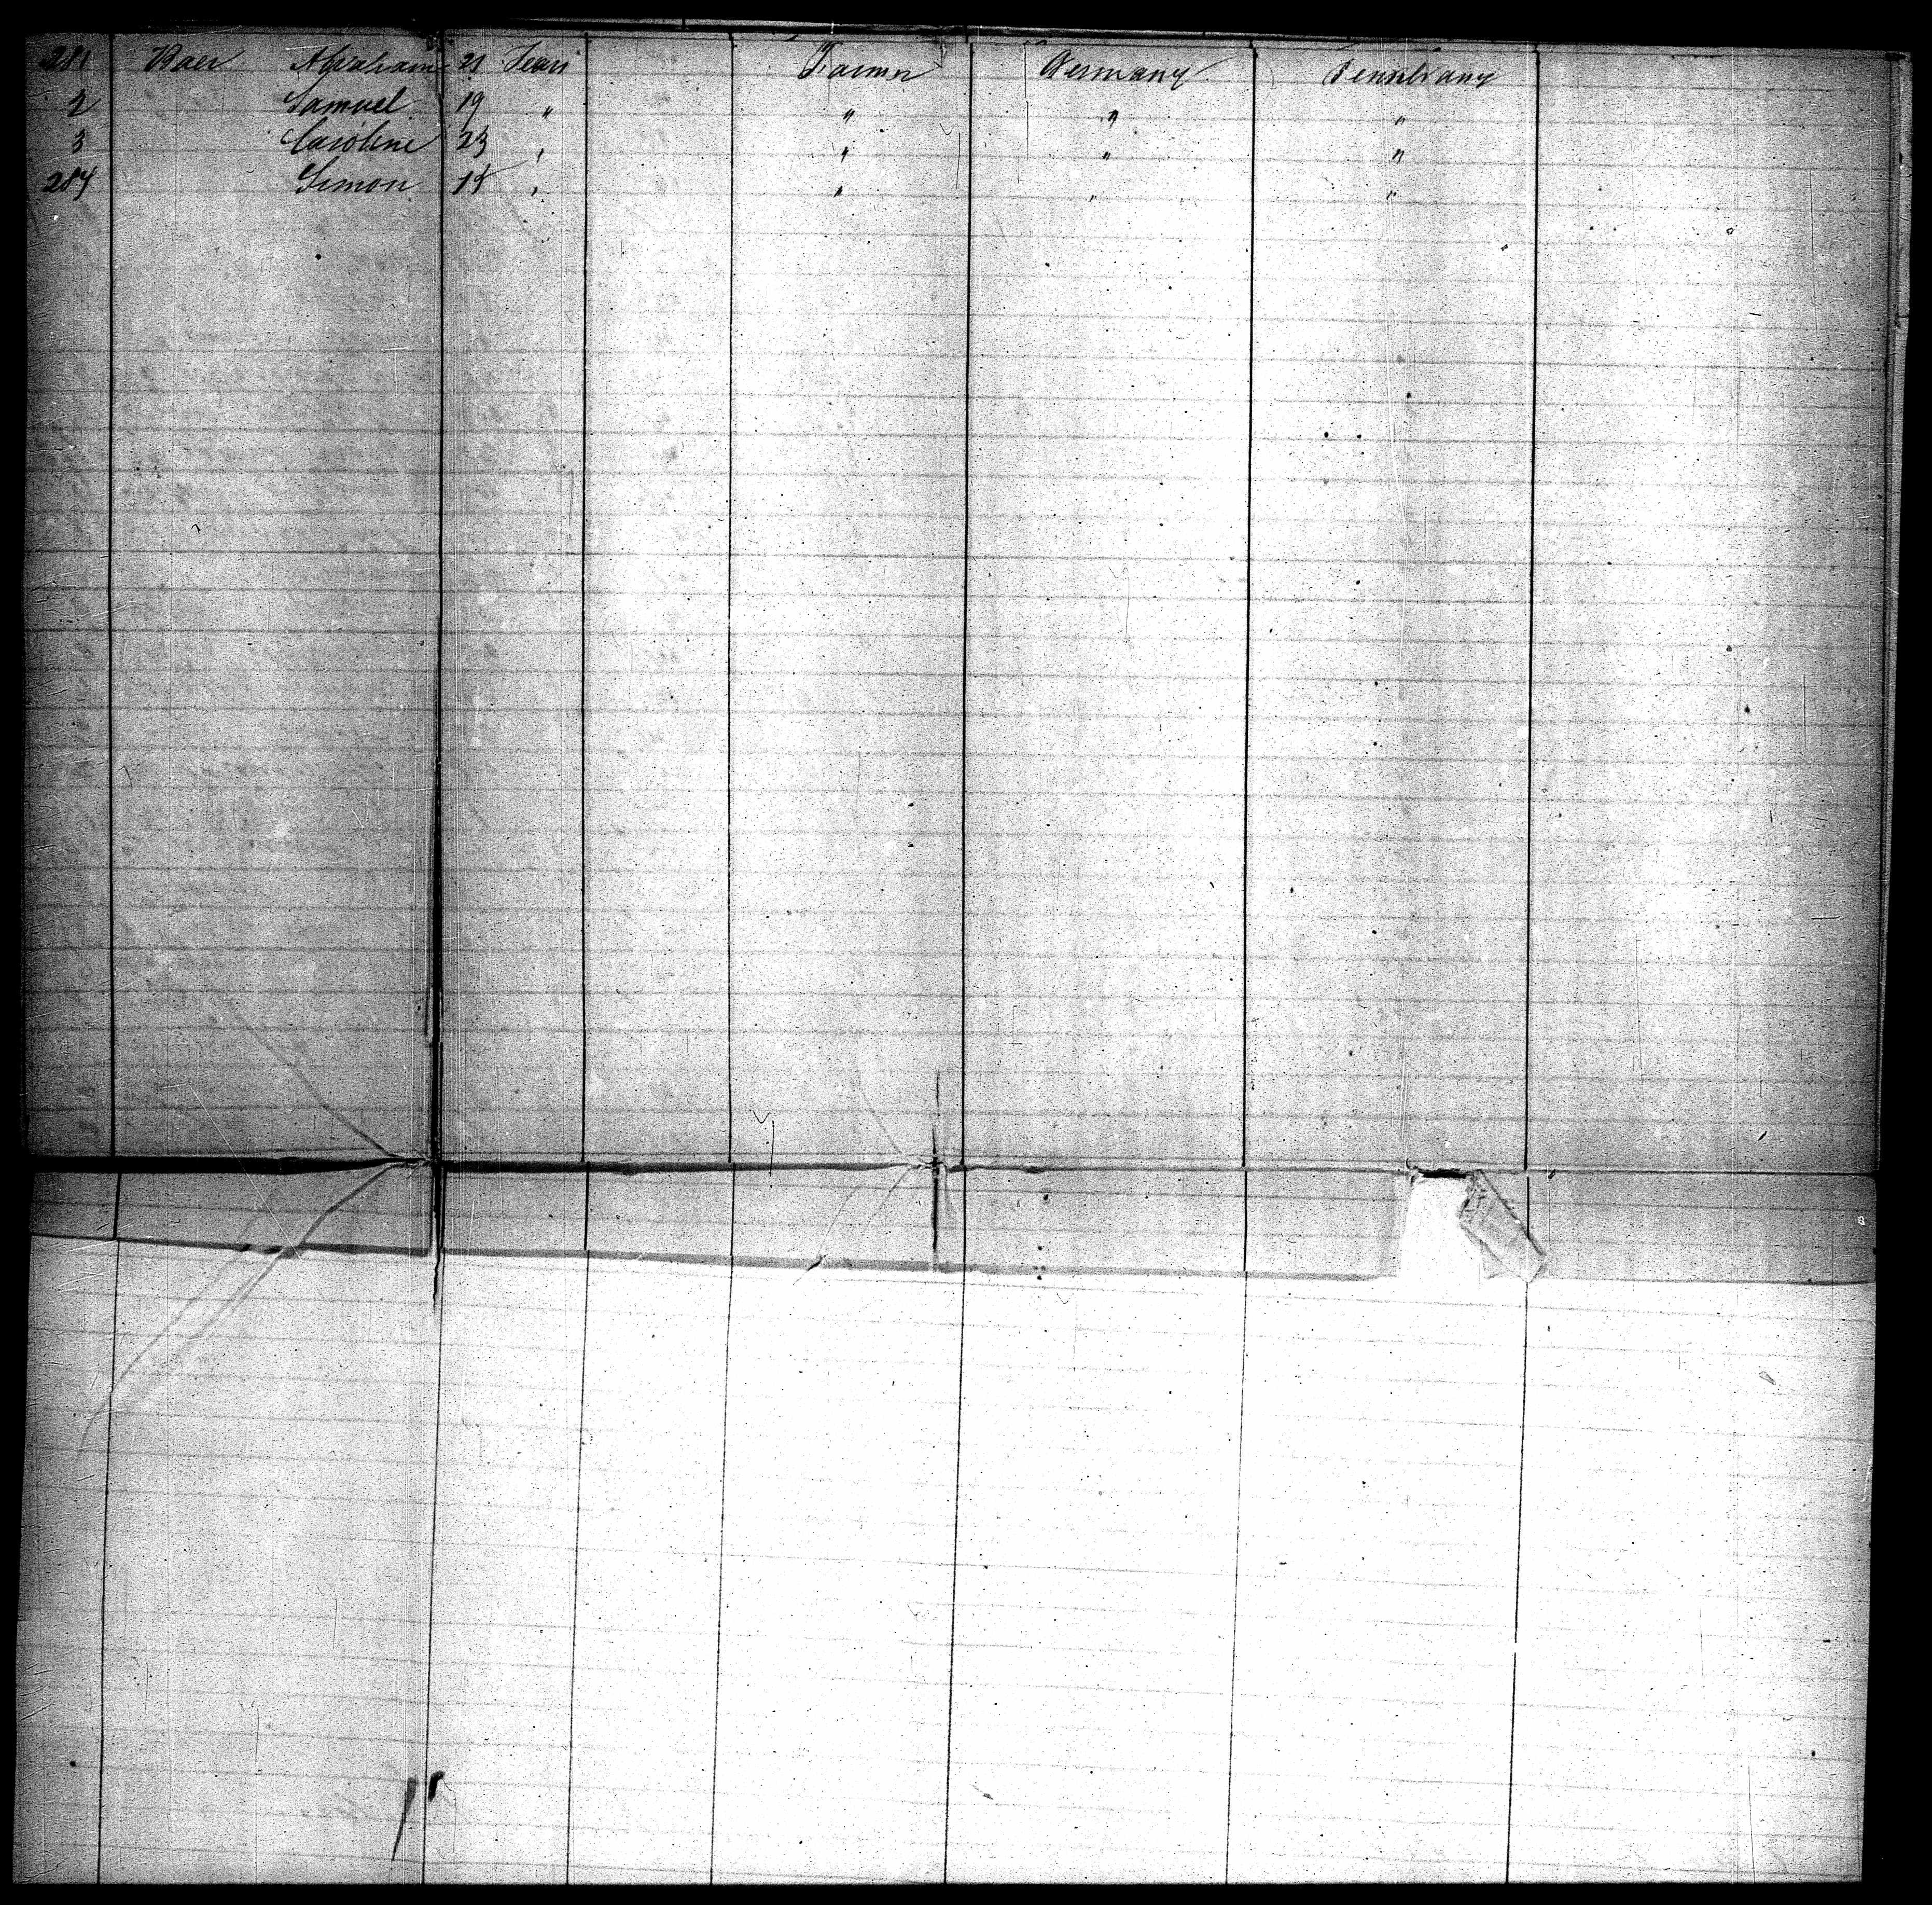 281 Baer Abraham 21 Years Farmer Germany Pennslvany
2 Samuel 19 " " " "
3 Caroline 23 " " " "
284 Simon 15 " " " "